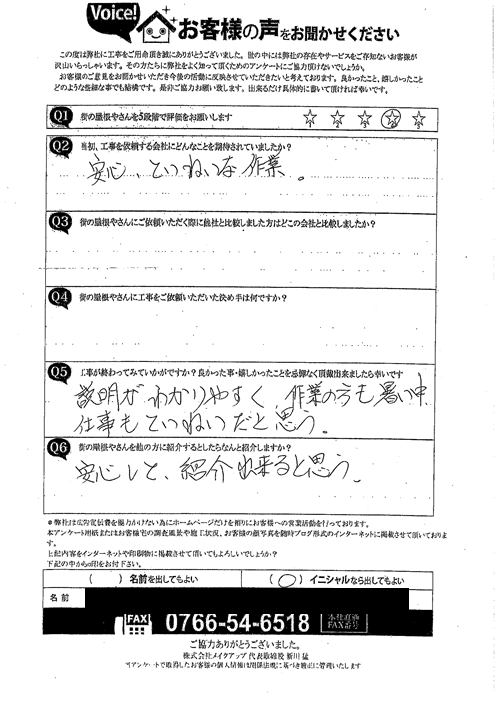 Voice! お客様の声をお聞かせください
この度は弊社に工事をご用命頂き誠にありがとうございました。世の中には弊社の存在やサービスをご存知ないお客様が
沢山いらっしゃいます。その方たちに弊社をよく知って頂くためのアンケートにご協力頂けないでしょうか。
お客様のご意見をお聞かせいただき今後の活動に反映させていただきたいと考えております。良かったこと、嬉しかったこと
どのような些細な事でも結構です。是非ご協力お願い致します。出来るだけ具体的に書いて頂ければ幸いです。
Q1 街の屋根やさんを5段階で評価をお願いします
Q2 当初、工事を依頼する会社にどんなことを期待されていましたか?
安心、ていねいな作業。
Q3 街の屋根やさんにご依頼いただく際に他社と比較しました方はどこの会社と比較しましたか?
Q4 街の屋根やさんに工事をご依頼いただいた決め手は何ですか?
Q5 工事が終わってみていかがですか?良かった事・嬉しかったことを忌憚なく頂戴出来ましたら幸いです
説明がわかりやすく、作業の方も暑い中
仕事もていねいだと思う。
Q6 街の屋根やさんを他の方に紹介するとしたらなんと紹介しますか?
安心して、紹介出来ると思う。
※弊社は広告宣伝費を極力かけない為にホームページだけを頼りにお客様への営業活動を行っております。
本アンケート用紙またはお客様宅の調査風景や施工状況、お客様の顔写真を随時ブログ形式のインターネットに掲載させて頂いておりま
す。
上記内容をインターネットや印刷物に掲載させて頂いてもよろしいでしょうか?
下記の中から○印をお付下さい。
( ) 名前を出してもよい ( ○ ) イニシャルなら出してもよい
名前
FAX 0766-54-6518 本社直通 FAX番号
ご協力ありがとうございました。
株式会社メイクアップ 代表取締役 新川 猛
※アンケートで取得したお客様の個人情報は関係法規に基づき適正に管理いたします